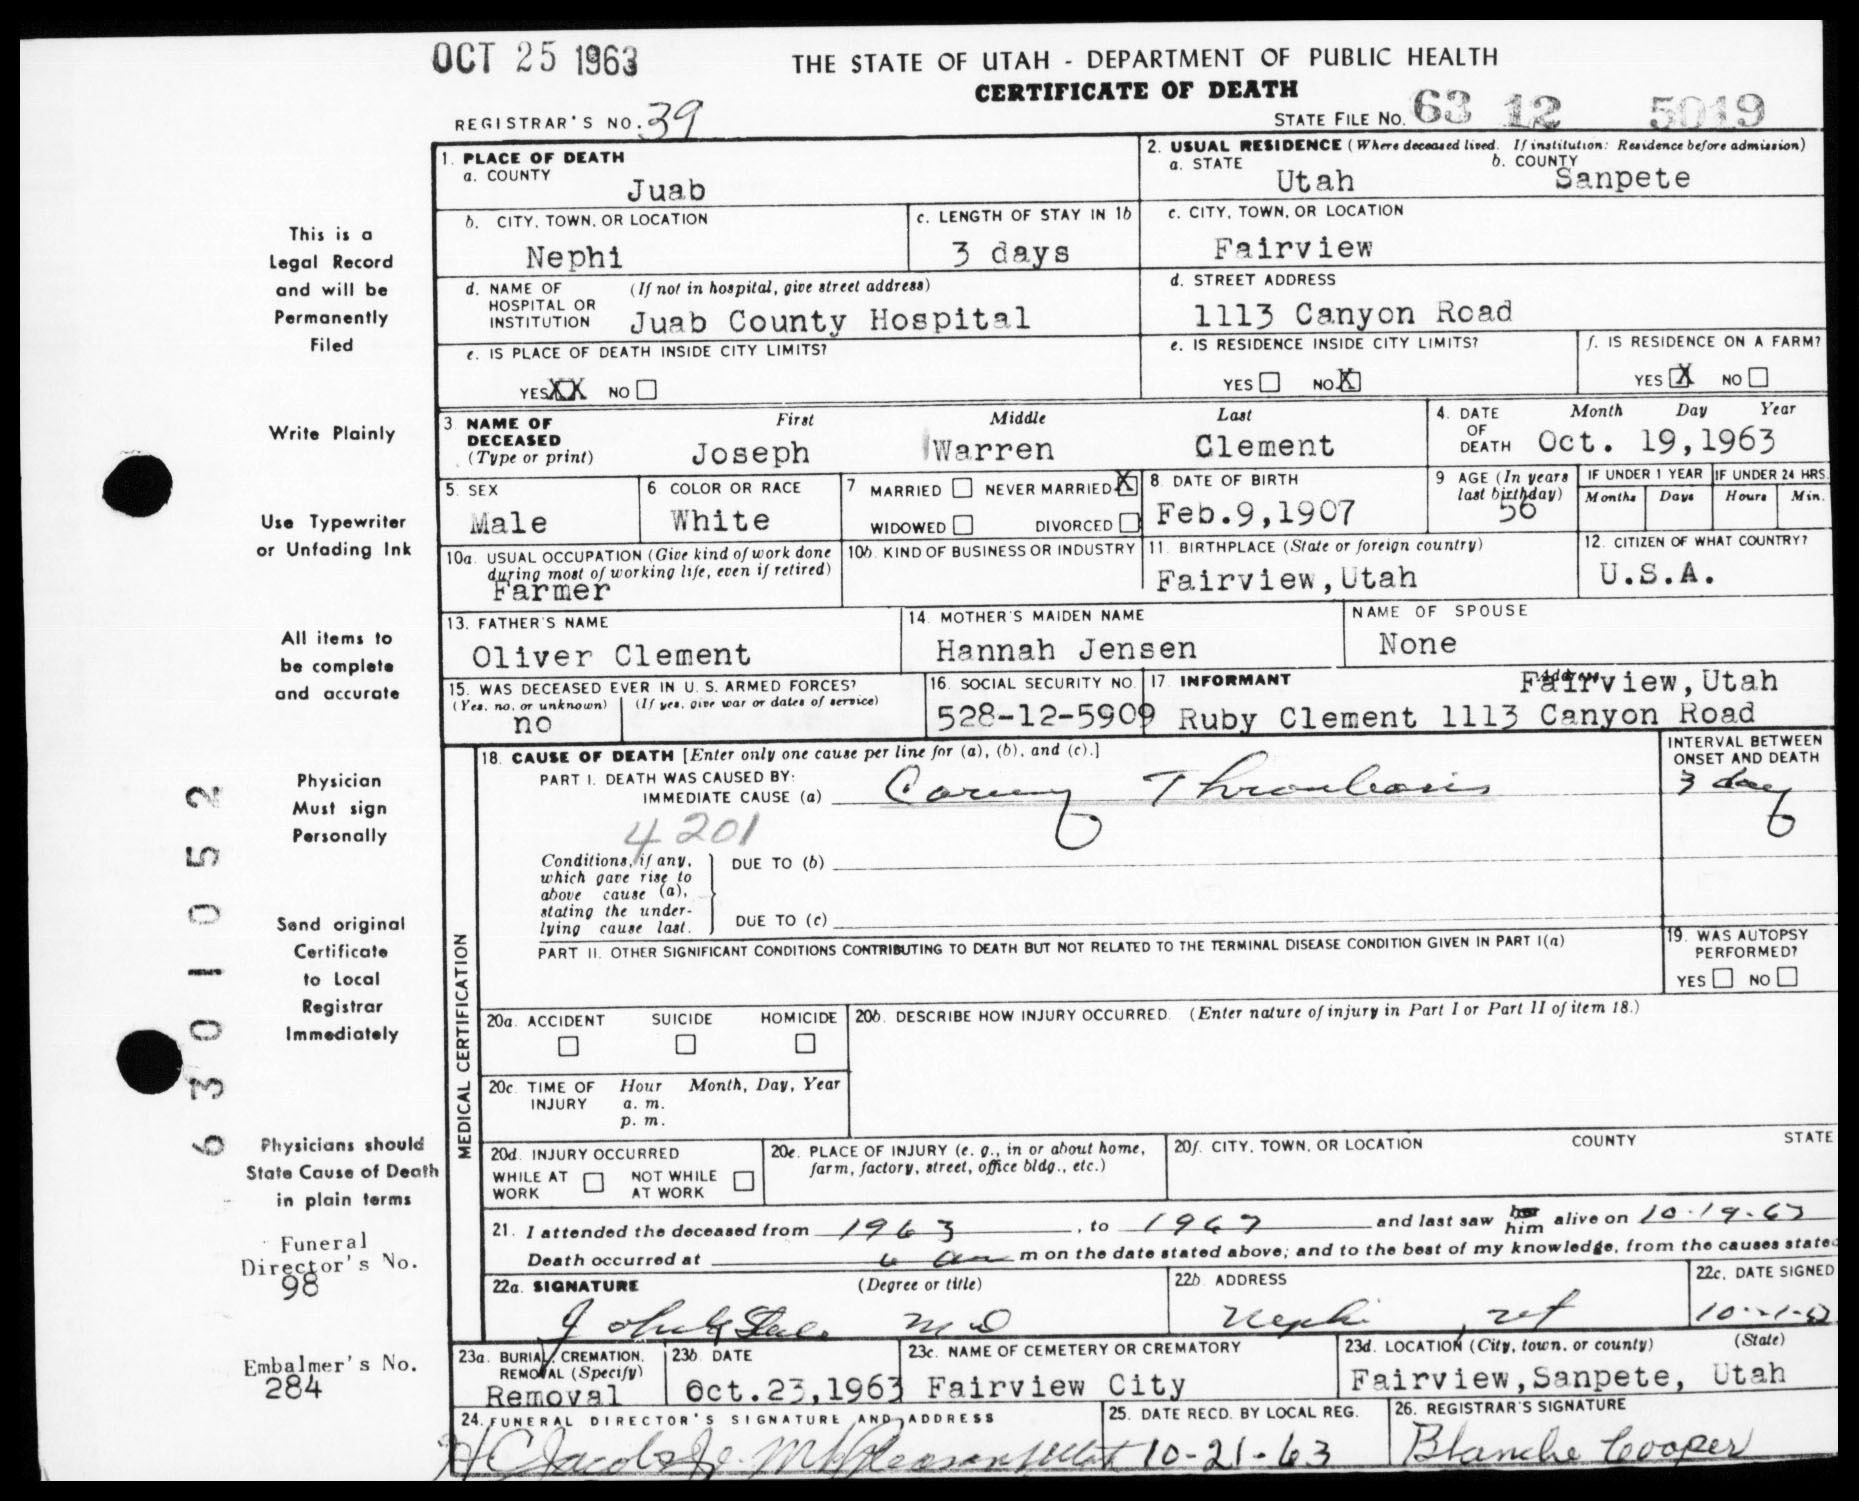 OCT 25 1963
THE STATE OF UTAH - DEPARTMENT OF PUBLIC HEALTH
CERTIFICATE OF DEATH
REGISTRAR'S NO. 39
STATE FILE NO. 63 12 5019
1. PLACE OF DEATH
a. COUNTY
Juab
2. USUAL RESIDENCE (Where deceased lived. If institution: Residence before admission)
a. STATE
Utah
b. COUNTY
Sanpete
b. CITY, TOWN, OR LOCATION
Nephi
c. LENGTH OF STAY IN 1b
3 days
c. CITY, TOWN, OR LOCATION
Fairview
d. NAME OF HOSPITAL OR INSTITUTION
(If not in hospital, give street address)
Juab County Hospital
d. STREET ADDRESS
1113 Canyon Road
e. IS PLACE OF DEATH INSIDE CITY LIMITS?
YES XX NO
e. IS RESIDENCE INSIDE CITY LIMITS?
YES NO X
f. IS RESIDENCE ON A FARM?
YES X NO
3. NAME OF DECEASED
(Type or print)
First Middle Last
Joseph Warren Clement
4. DATE OF DEATH
Month Day Year
Oct. 19,1963
5. SEX
Male
6 COLOR OR RACE
White
7 MARRIED NEVER MARRIED X
WIDOWED DIVORCED
8. DATE OF BIRTH
Feb.9,1907
9 AGE (In years last birthday)
56
IF UNDER 1 YEAR
Months Days
IF UNDER 24 HRS.
Hours Min.
10a. USUAL OCCUPATION (Give kind of work done
during most of working life, even if retired)
Farmer
10b. KIND OF BUSINESS OR INDUSTRY
11. BIRTHPLACE (State or foreign country)
Fairview,Utah
12. CITIZEN OF WHAT COUNTRY?
U.S.A.
13. FATHER'S NAME
Oliver Clement
14. MOTHER'S MAIDEN NAME
Hannah Jensen
NAME OF SPOUSE
None
15. WAS DECEASED EVER IN U. S. ARMED FORCES?
(Yes, no, or unknown) (If yes, give war or dates of service)
no
16. SOCIAL SECURITY NO.
528-12-5909
17. INFORMANT
Address
Fairview,Utah
Ruby Clement 1113 Canyon Road
MEDICAL CERTIFICATION
18. CAUSE OF DEATH [Enter only one cause per line for (a), (b), and (c).]
INTERVAL BETWEEN
ONSET AND DEATH
PART I. DEATH WAS CAUSED BY:
IMMEDIATE CAUSE (a) Coronary Thrombosis
3 day
4201
Conditions, if any,
which gave rise to
above cause (a),
stating the under-
lying cause last.
DUE TO (b)
DUE TO (c)
PART II. OTHER SIGNIFICANT CONDITIONS CONTRIBUTING TO DEATH BUT NOT RELATED TO THE TERMINAL DISEASE CONDITION GIVEN IN PART I(a)
19. WAS AUTOPSY PERFORMED?
YES NO
20a. ACCIDENT SUICIDE HOMICIDE
20b. DESCRIBE HOW INJURY OCCURRED. (Enter nature of injury in Part I or Part II of item 18.)
20c. TIME OF INJURY
Hour Month, Day, Year
a. m.
p. m.
20d. INJURY OCCURRED
WHILE AT WORK
NOT WHILE AT WORK
20e. PLACE OF INJURY (e. g., in or about home,
farm, factory, street, office bldg., etc.)
20f. CITY, TOWN, OR LOCATION COUNTY STATE
21. I attended the deceased from 1963, to 1963 and last saw her him alive on 10-19-63
Death occurred at 6 am m on the date stated above; and to the best of my knowledge, from the causes stated
22a. SIGNATURE
(Degree or title)
MD
22b. ADDRESS
Nephi, Ut
22c. DATE SIGNED
23a. BURIAL, CREMATION,
REMOVAL (Specify)
Removal
23b. DATE
Oct.23,1963
23c. NAME OF CEMETERY OR CREMATORY
Fairview City
23d. LOCATION (City, town, or county) (State)
Fairview,Sanpete, Utah
24. FUNERAL DIRECTOR'S SIGNATURE AND ADDRESS
Mt Pleasant Utah
25. DATE RECD. BY LOCAL REG.
10-21-63
26. REGISTRAR'S SIGNATURE
Blanche Cooper
This is a
Legal Record
and will be
Permanently
Filed
Write Plainly
Use Typewriter
or Unfading Ink
All items to
be complete
and accurate
Physician
Must sign
Personally
Send original
Certificate
to Local
Registrar
Immediately
Physicians should
State Cause of Death
in plain terms
Funeral
Director's No.
98
Embalmer's No.
284
6301052